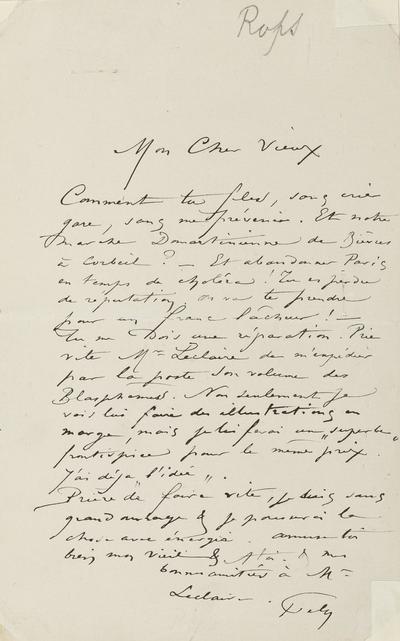 Rops
Mon Cher Vieux
Comment tu files, sans crier
gare, sans me prévenir. Et notre
marche Dumartinienne de Bièvres
à Corbeil ? – Et abandonner Paris
en temps de choléra ! Tu es perdu
de réputation, on va te prendre
pour un franc lâcheur ! –
Tu me Dois une réparation. Prie
vite Mme Leclaire de m'expédier
par la poste son volume des
Blasphèmes. Non seulement je
vais lui faire des illustrations en
marge, mais je lui ferai un "superbe"
frontispice pour le même prix.
J'ai déjà "l'idée".
Prière de faire vite, je suis sans
grand ouvrage & je pousserai la
chose avec énergie. amuse-toi
bien mon vieil & à toi & mes
bonnes amitiés à Mme
Leclaire. Fely